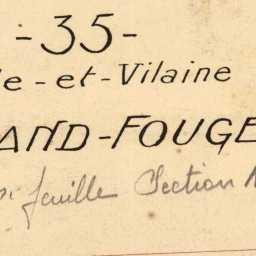 -35-
le-et-Vilaine
AND-FOUGE
feuille Section